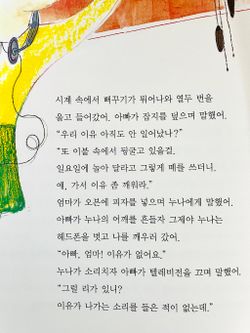 시계 속에서 뻐꾸기가 튀어나와 열두 번을
울고 들어갔어. 아빠가 잡지를 덮으며 말했어.
“우리 이유 아직도 안 일어났나?”
“또 이불 속에서 뒹굴고 있을걸.
일요일에 놀아 달라고 그렇게 떼를 쓰더니.
얘, 가서 이유 좀 깨워라.”
엄마가 오븐에 피자를 넣으며 누나에게 말했어.
아빠가 누나의 어깨를 흔들자 그제야 누나는
헤드폰을 벗고 나를 깨우러 갔어.
“아빠, 엄마! 이유가 없어요.”
누나가 소리치자 아빠가 텔레비전을 끄며 말했어.
“그럴 리가 있니?
이유가 나가는 소리를 들은 적이 없는데.”